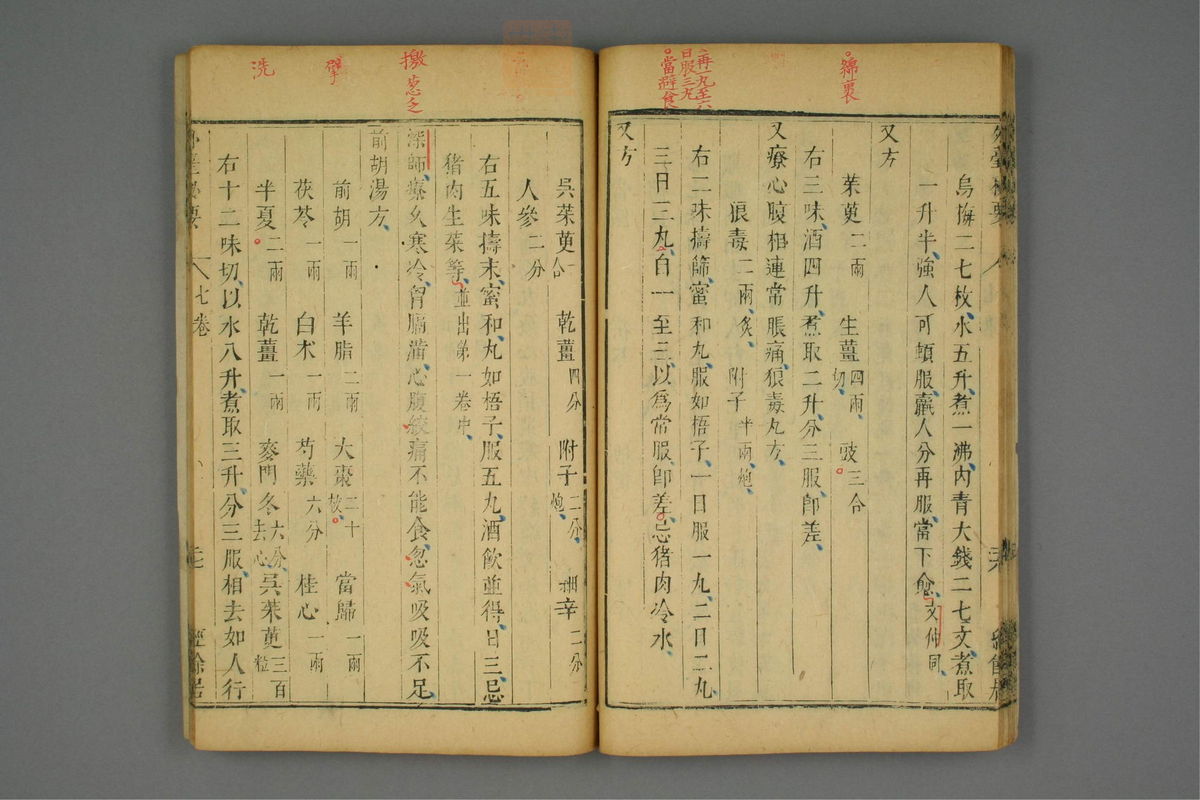 綿裹
再一丸至六
日服三丸
當避食
外臺秘要
烏梅二七枚水五升煮一沸內青大錢二七文煮取
一升半強人可頓服羸人分再服當下愈文仲同
又方
茱萸二兩 生薑四兩切 豉三合
右三味酒四升煮取二升分三服即差
又療心腹相連常脹痛狼毒丸方
狼毒二兩炙 附子半兩炮
右二味擣篩蜜和丸服如梧子一日服一丸二日二丸
三日三丸自一至三以為常服即差忌豬肉冷水
又方
撽葱之
擘
洗
吳茱萸一合 乾薑四分 附子二分炮 細辛二分
人參二分
右五味擣末蜜和丸如梧子服五丸酒飲並得日三忌
豬肉生菜等並出第一卷中
深師療久寒冷胷膈滿心腹絞痛不能食忽氣吸吸不足
前胡湯方
前胡一兩 羊脂二兩 大棗二十枚 當歸一兩
茯苓一兩 白术一兩 芍藥六分 桂心一兩
半夏二兩 乾薑一兩 麥門冬六分去心 吳茱萸三百粒
右十二味切以水八升煮取三升分三服相去如人行
外臺秘要 七卷 經餘居